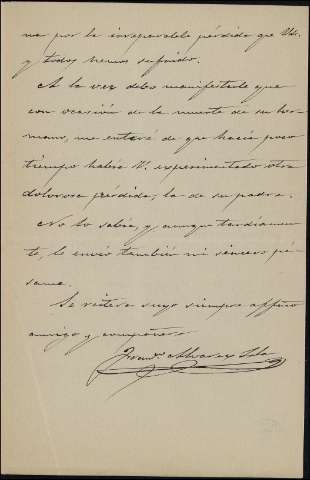 na por la irreparable pérdida que Vds.
y todos hemos sufrido.
A la vez debo manifestarle que
con ocasión de la muerte de su her-
mano, me enteré de que hacía poco
tiempo había V. experimentado otra
dolorosa pérdida, la de su padre.
No lo sabía, y aunque tardíamen-
te, le envío también mi sincero pé-
same.
Se reitera suyo siempre affmo
amigo y compañero
Alvarez